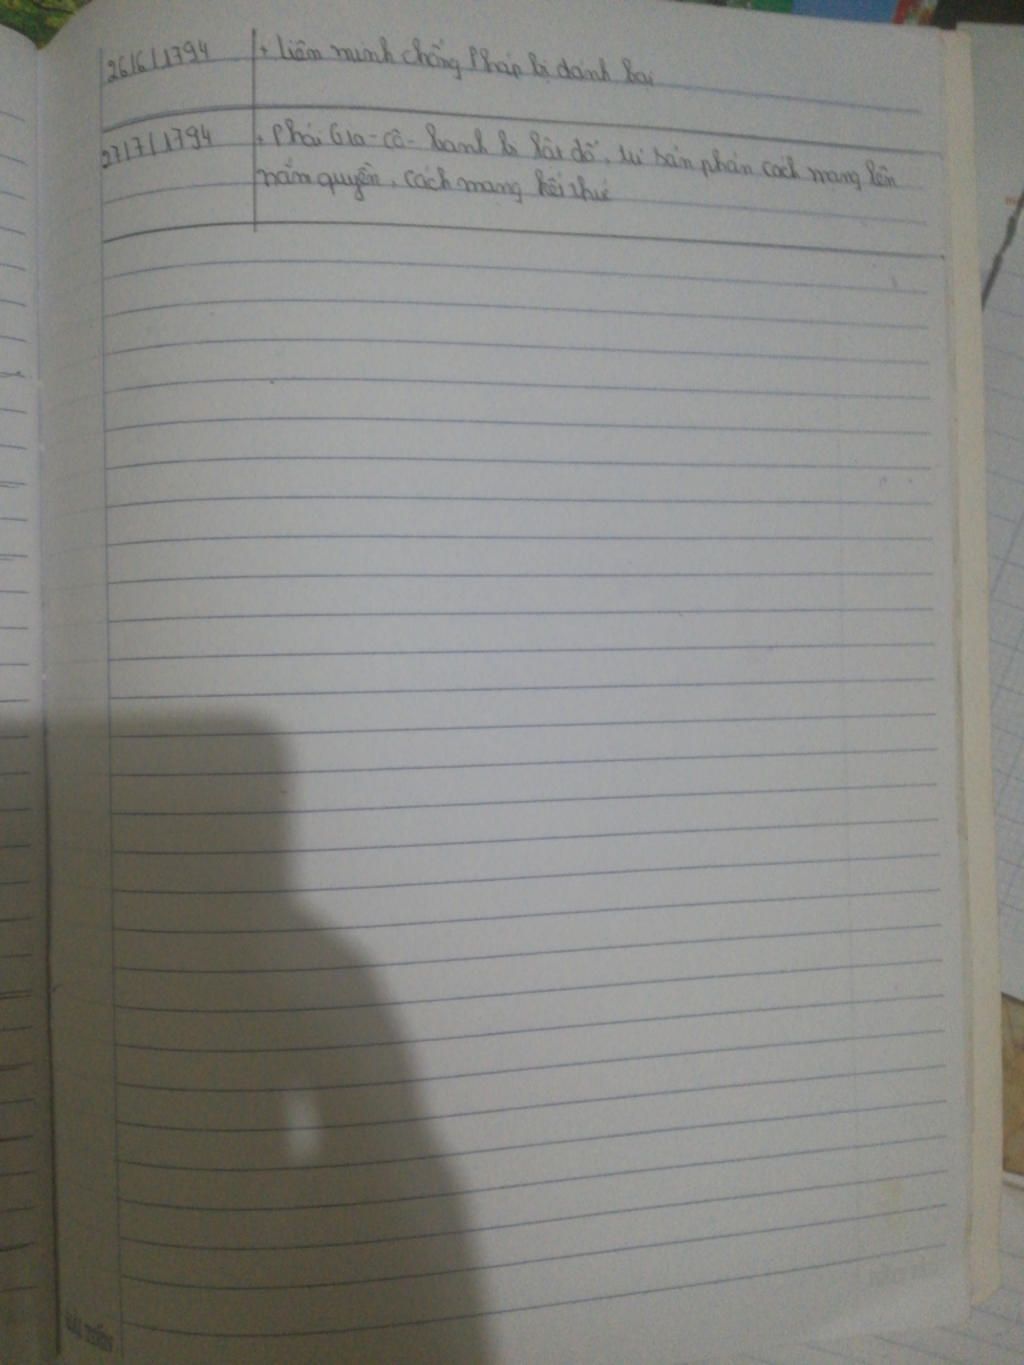 26/6/1794 + Liên minh chống Pháp bị đánh bại
27/7/1794 + Phái Gia-cô-banh bị lật đổ, tư sản phản cách mạng lên
nắm quyền, cách mạng kết thúc